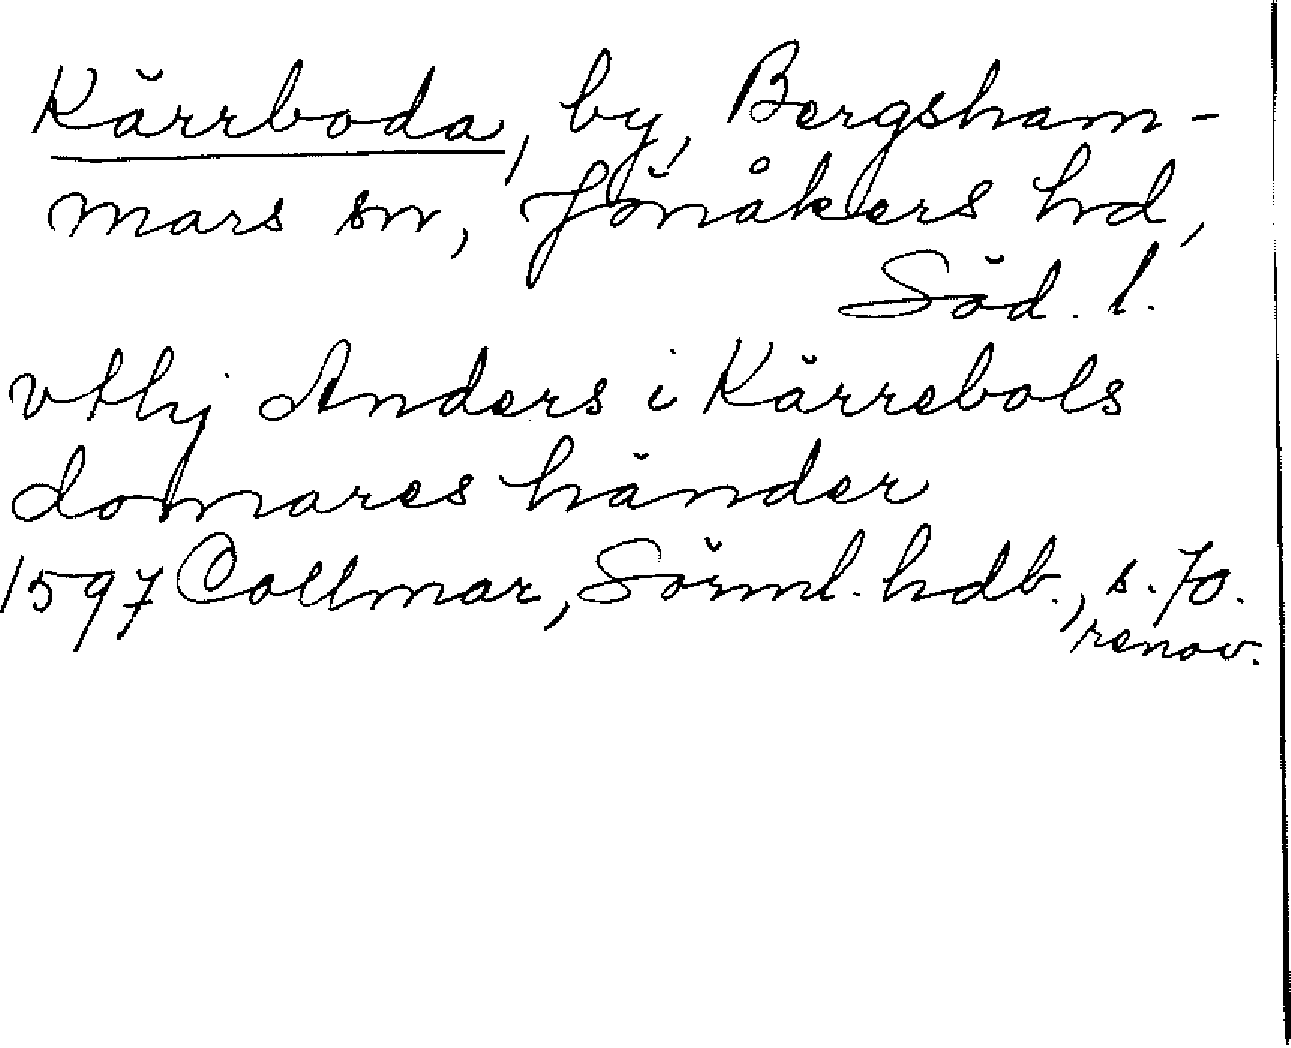 Kärrboda, by, Bergsham-
mars sn, Jönåkers hd,
Söd. l.
vthj Anders i Kärrebols
domares händer
1597 Collmar, Sörml. hdb., s. 70.
renov.